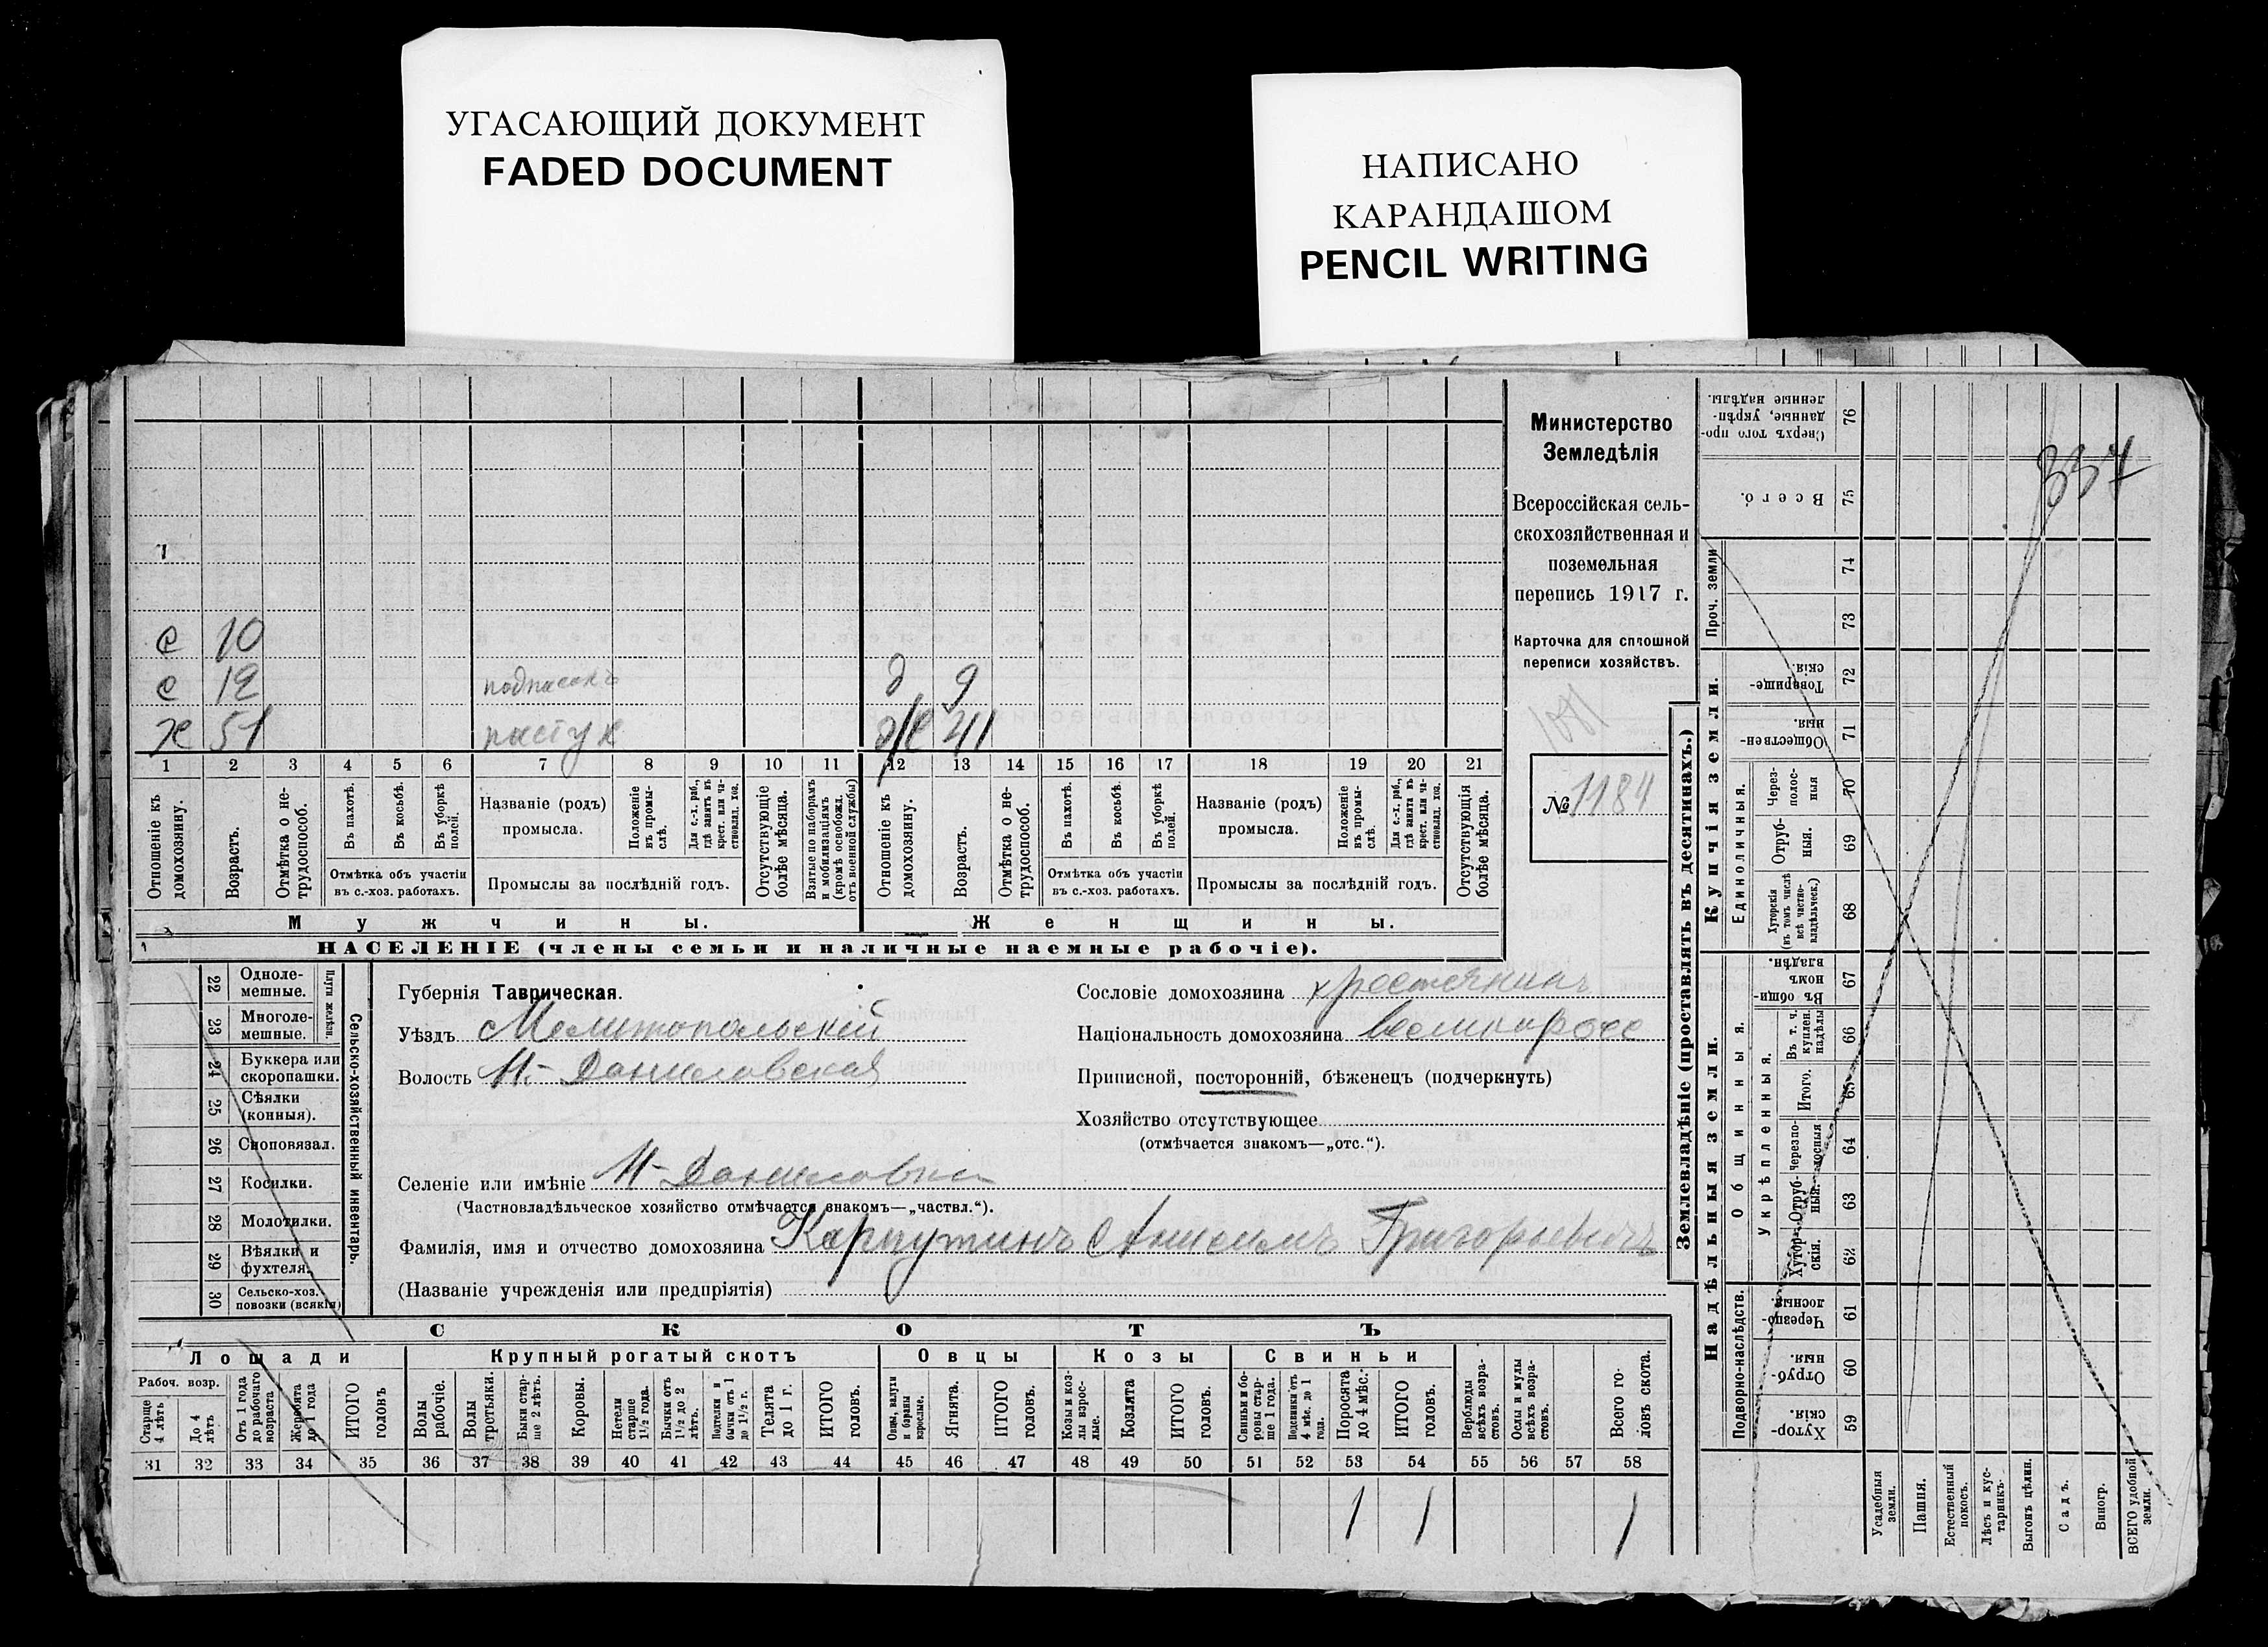 УГАСАЮЩИЙ ДОКУМЕНТ
FADED DOCUMENT
НАПИСАНО
КАРАНДАШОМ
PENCIL WRITING
Министерство
Земледѣлія
Всероссійская сель-
скохозяйственная и
поземельная
перепись 1917 г.
Карточка для сплошной
переписи хозяйствъ.
№ 1184
337
с 10
с 12 подпасокъ д 9
х 51 пастух д/с 41
1 2 3 4 5 6 7 8 9 10 11 12 13 14 15 16 17 18 19 20 21
Отношеніе къ домохозяину.
Возрастъ.
Отмѣтка о не-трудоспособ.
Въ пахотѣ.
Въ косьбѣ.
Въ уборкѣ полей.
Отмѣтка объ участіи въ с.-хоз. работахъ.
Названіе (родъ) промысла.
Положеніе въ промы-слѣ.
Для с.-х. раб., гдѣ занятъ въ крест. или ча-стновлад. хоз.
Промыслы за послѣдній годъ.
Отсутствующіе болѣе мѣсяца.
Взятые по наборамъ и мобилизаціямъ (кромѣ освобожд. отъ военной службы)
Отношеніе къ домохозяину.
Возрастъ.
Отмѣтка о не-трудоспособ.
Въ пахотѣ.
Въ косьбѣ.
Въ уборкѣ полей.
Отмѣтка объ участіи въ с.-хоз. работахъ.
Названіе (родъ) промысла.
Положеніе въ промы-слѣ.
Для с.-х. раб., гдѣ занята въ крест. или ча-стновлад. хоз.
Промыслы за послѣдній годъ.
Отсутствующія болѣе мѣсяца.
Мужчины. Женщины.
НАСЕЛЕНІЕ (члены семьи и наличные наемные рабочіе).
Сельско-хозяйственный инвентарь.
Плуги желѣзн.
22 Одноле-мешные.
23 Многоле-мешные.
24 Буккера или скоропашки.
25 Сѣялки (конныя).
26 Сноповязал.
27 Косилки.
28 Молотилки.
29 Вѣялки и фухтеля.
30 Сельско-хоз. повозки (всякія)
Губернія Таврическая.
Уѣздъ Мелитопольскій
Волость Н.-Даниловская
Селеніе или имѣніе Н-Даниловка
(Частновладѣльческое хозяйство отмѣчается знакомъ—„частвл.“).
Фамилія, имя и отчество домохозяина Карпутинъ Анисимъ Григорьевичъ
(Названіе учрежденія или предпріятія)
Сословіе домохозяина крестьянинъ
Національность домохозяина великоросс
Приписной, посторонній, бѣженецъ (подчеркнуть)
Хозяйство отсутствующее
(отмѣчается знакомъ—„отс.“).
СКОТЪ
Лошади Крупный рогатый скотъ Овцы Козы Свиньи
Рабоч. возр.
Старше 4 лѣтъ
До 4 лѣтъ
Отъ 1 года до рабочаго возраста
Жеребята до 1 года
ИТОГО головъ
Волы рабочіе.
Волы третьяки.
Быки стар-ше 2 лѣтъ.
Коровы.
Нетели старше 1½ года.
Бычки отъ 1½ до 2 лѣтъ.
Подтелки и бычки отъ 1 до 1½ г.
Телята до 1 г.
ИТОГО головъ.
Овцы, валухи и бараны взрослые.
Ягнята.
ИТОГО головъ.
Козы и коз-лы взрос-лые.
Козлята
ИТОГО головъ.
Свиньи и бо-ровы стар-ше 1 года.
Подсвинки отъ 4 мѣс. до 1 года.
Поросята до 4 мѣс.
ИТОГО головъ.
Верблюды всѣхъ возра-стовъ.
Ослы и мулы всѣхъ возра-стовъ.
Всего го-ловъ скота.
31 32 33 34 35 36 37 38 39 40 41 42 43 44 45 46 47 48 49 50 51 52 53 54 55 56 57 58
1 1 1
Землевладѣніе (проставлять въ десятинахъ.)
Надѣльныя земли. Купчія земли. Проч. земли
Подворно-наслѣдств. Общинныя. Укрѣпленныя. Единоличныя.
59 Хутор-скія.
60 Отруб-ныя.
61 Черезпо-лосныя.
62 Хутор-скія.
63 Отруб-ный.
64 Черезпо-лосныя
65 Итого.
66 Въ т. ч. куплен. надѣлы
67 Въ общи-номъ владѣн.
68 Хуторскія (въ томъ числѣ всѣ частно-владѣльческ.)
69 Отруб-ныя.
70 Через-полос-ныя
71 Обществен-ныя.
72 Товарище-скія.
73
74
75 Всего.
76 Сверхъ того про-данные, укрѣп-ленные надѣлы.
Усадебныя земли.
Пашня.
Естественный покосъ.
Лѣсъ и кус-тарникъ.
Выгонъ цѣлин.
Садъ.
Виногр.
ВСЕГО удобной земли.